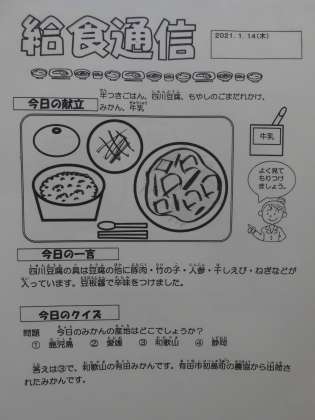 給食通信
2021.1.14(木)
今日の献立
牛つきごはん、四川豆腐、もやしのごまだれかけ、
みかん、牛乳
牛乳
よく見て
もりつけ
ましょう。
今日の一言
四川豆腐の具は豆腐の他に豚肉・竹の子・人参・干しえび・ねぎなどが
入っています。豆板醤で辛味をつけました。
今日のクイズ
問題 今日のみかんの産地はどこでしょうか?
① 鹿児島 ② 愛媛 ③ 和歌山 ④ 静岡
答えは③で、和歌山の有田みかんです。有田市初島町の農協から出荷さ
れたみかんです。